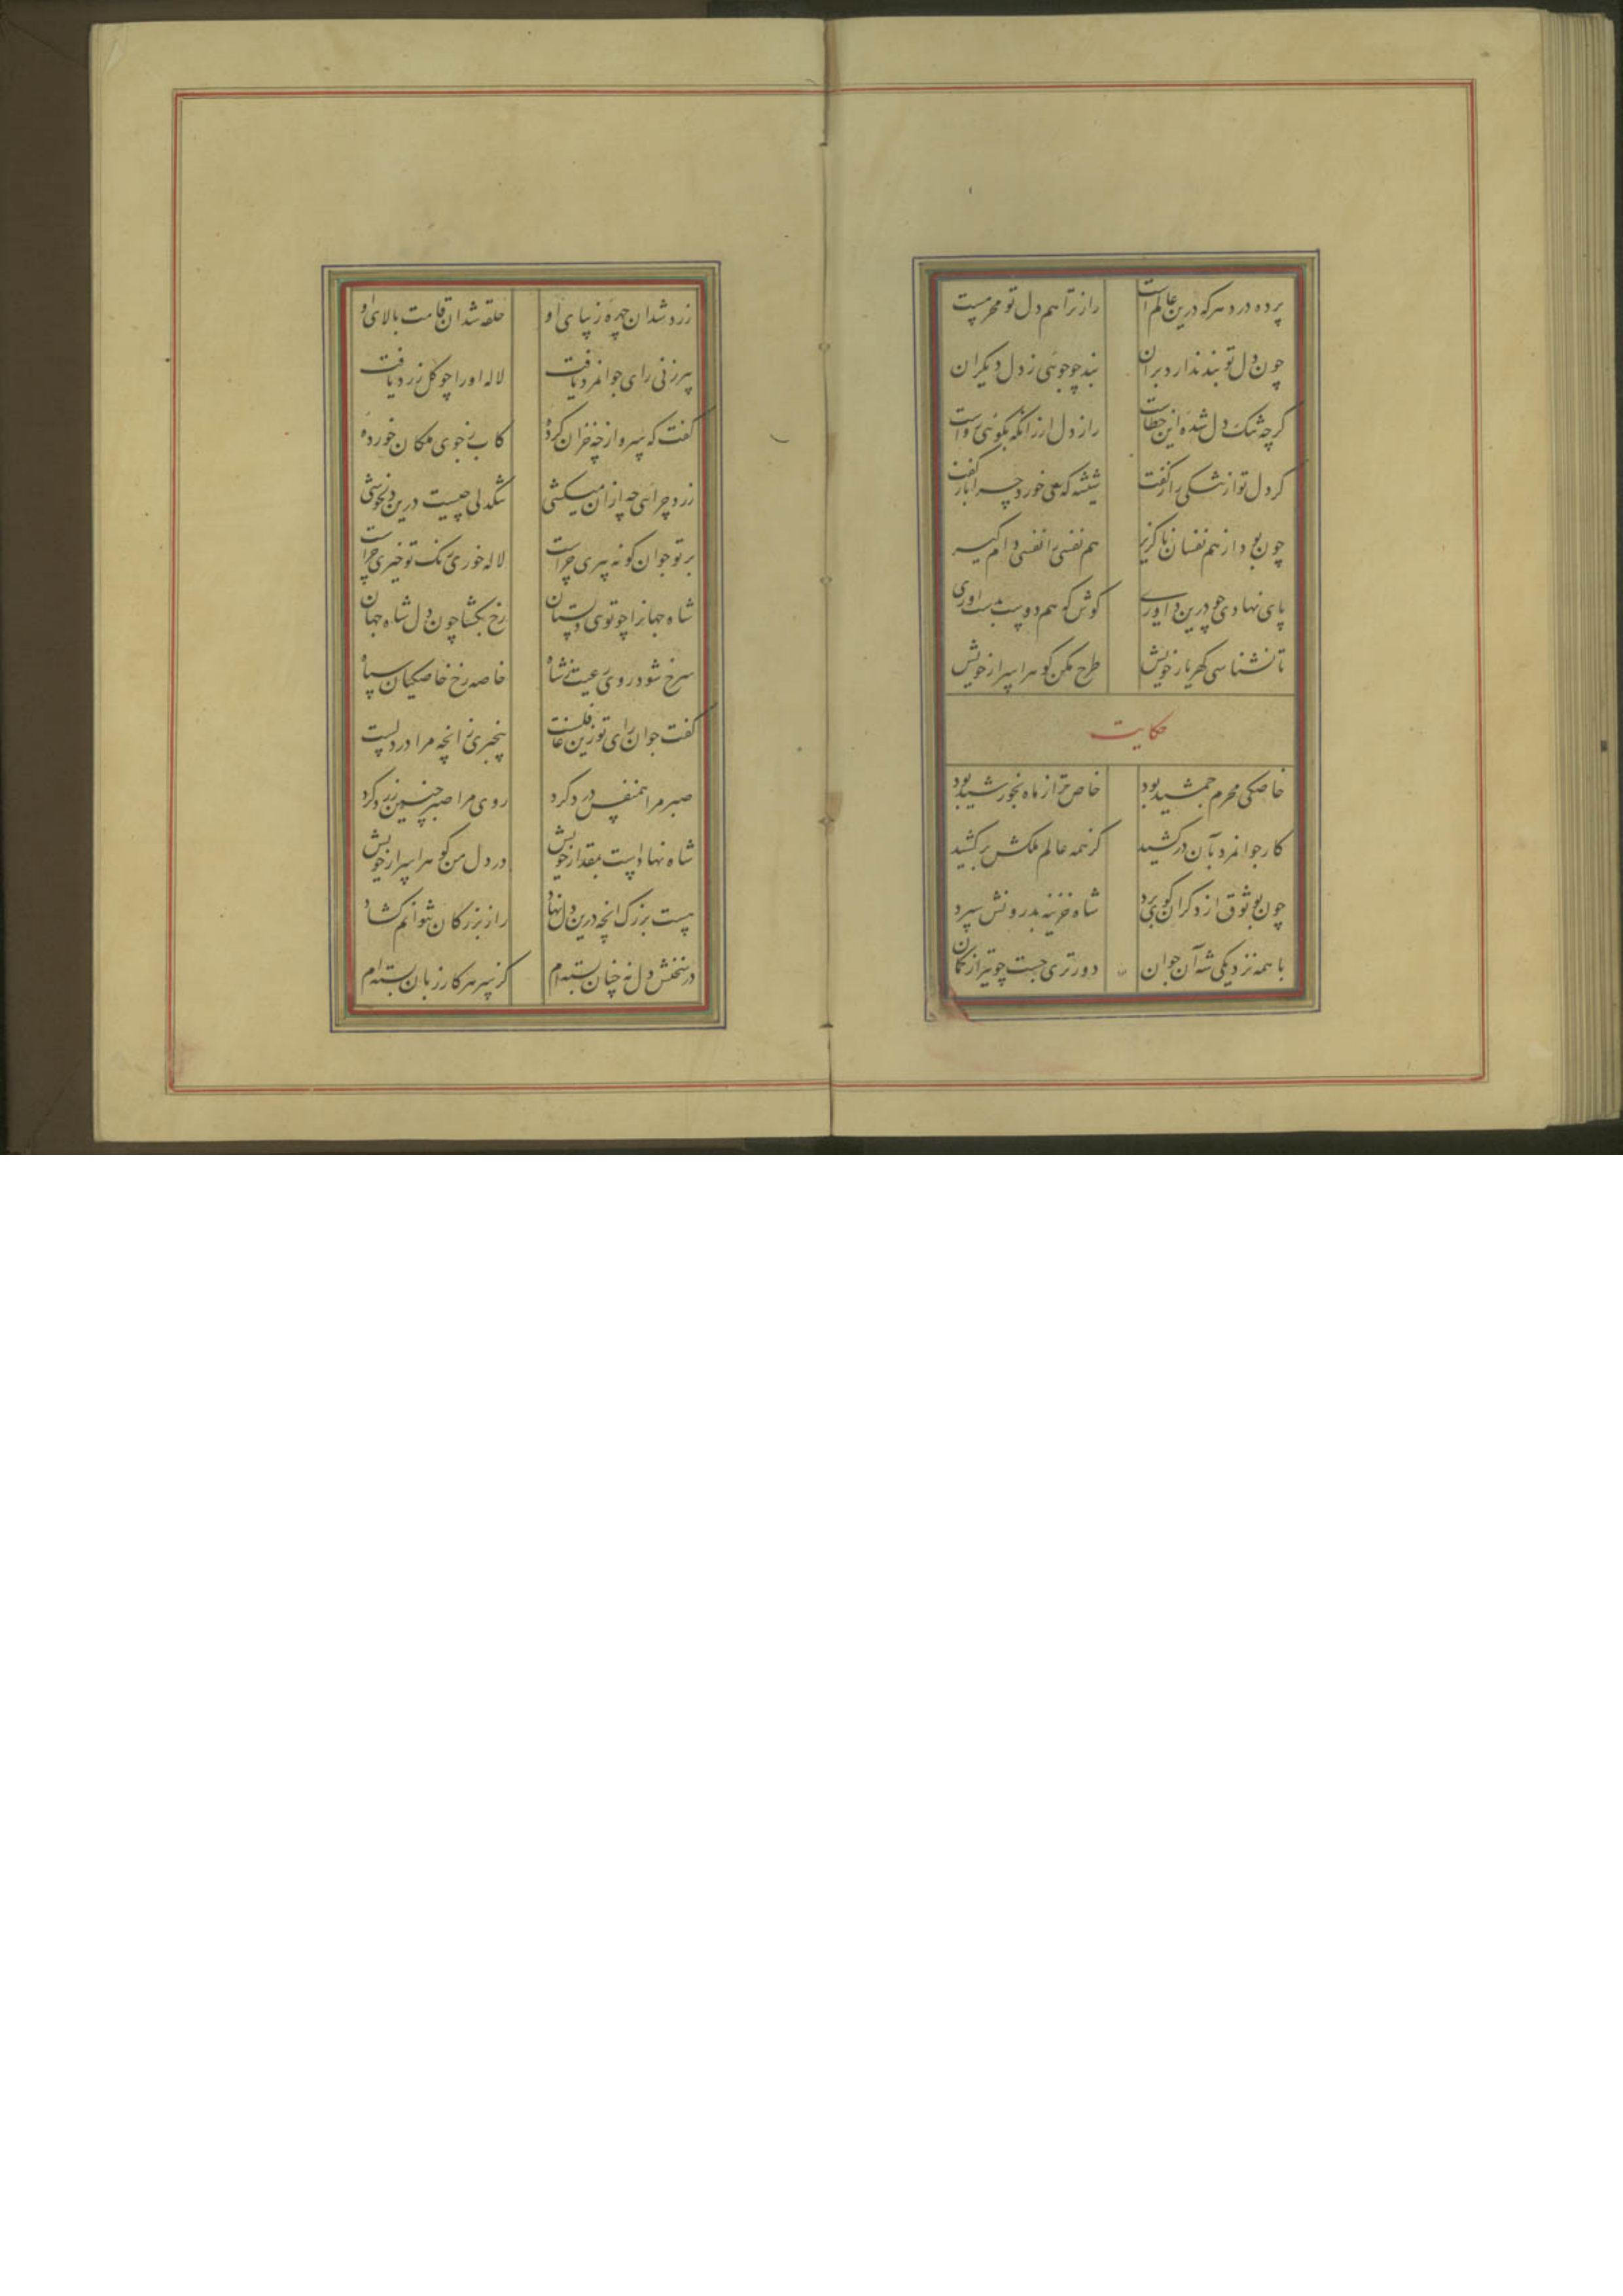 پرده درد هرکه درین عالم است
راز ترا هم دل تو محرمست
چون دل تو بند ندارد بران
بند چو جوئی ز دل دیکران
کرچه تنک دل شده این خطاست
راز دل ارزانکه بکوئی رواست
کر دل تو از تنکی راز کفت
شیشه که می خورد چرا باز کفت
چون بود از هم نفسان ناکزیر
هم نفسی را نفسی وام کیر
پای نهادی چو درین داوری
کوش که هم دوست بدست اوری
تا نشناسی کهر یار خویش
طرح مکن کوهر اسرار خویش
حکایت
خاصکی محرم جمشید بود
خاص تر از ماه بخورشید بود
کار جوانمرد بآن درکشید
کز همه عالم ملکش برکشید
چون بوثوق از دکران کوی برد
شاه خزینه بدرونش سپرد
با همه نزدیکی شه آن جوان
دورتری جست چو تیر از کمان
زرد شد ان چهره زیبای او
حلقه شد ان قامت بالای او
پیرزنی رای جوانمرد یافت
لاله او را چو کل زرد یافت
کفت که سروا ز چه خزان کرده
کاب ز جوی ملکان خورده
زرد چرائی چه از ان میکشی
تنکدلی چیست درین دلخوشی
بر تو جوان کونه پیری چراست
لاله خوری رنک تو خیری چراست
شاه جهانرا چو توی دلستان
رخ بکشا چون دل شاه جهان
سرخ شود روی رعیت ز شاه
خاصه رخ خاصکیان سپاه
کفت جوان رای تو زین غافلست
بیخبری ز انچه مرا در دلست
صبر مرا همنفس درد کرد
روی مرا صبر چنین زرد کرد
شاه نهادست بمقدار خویش
در دل من کوهر اسرار خویش
هست بزرک انچه درین دل نهاد
راز بزرکان نتوانم کشاد
در سخنش دل نه چنان بسته ام
کز سر هر کار زبان بسته ام